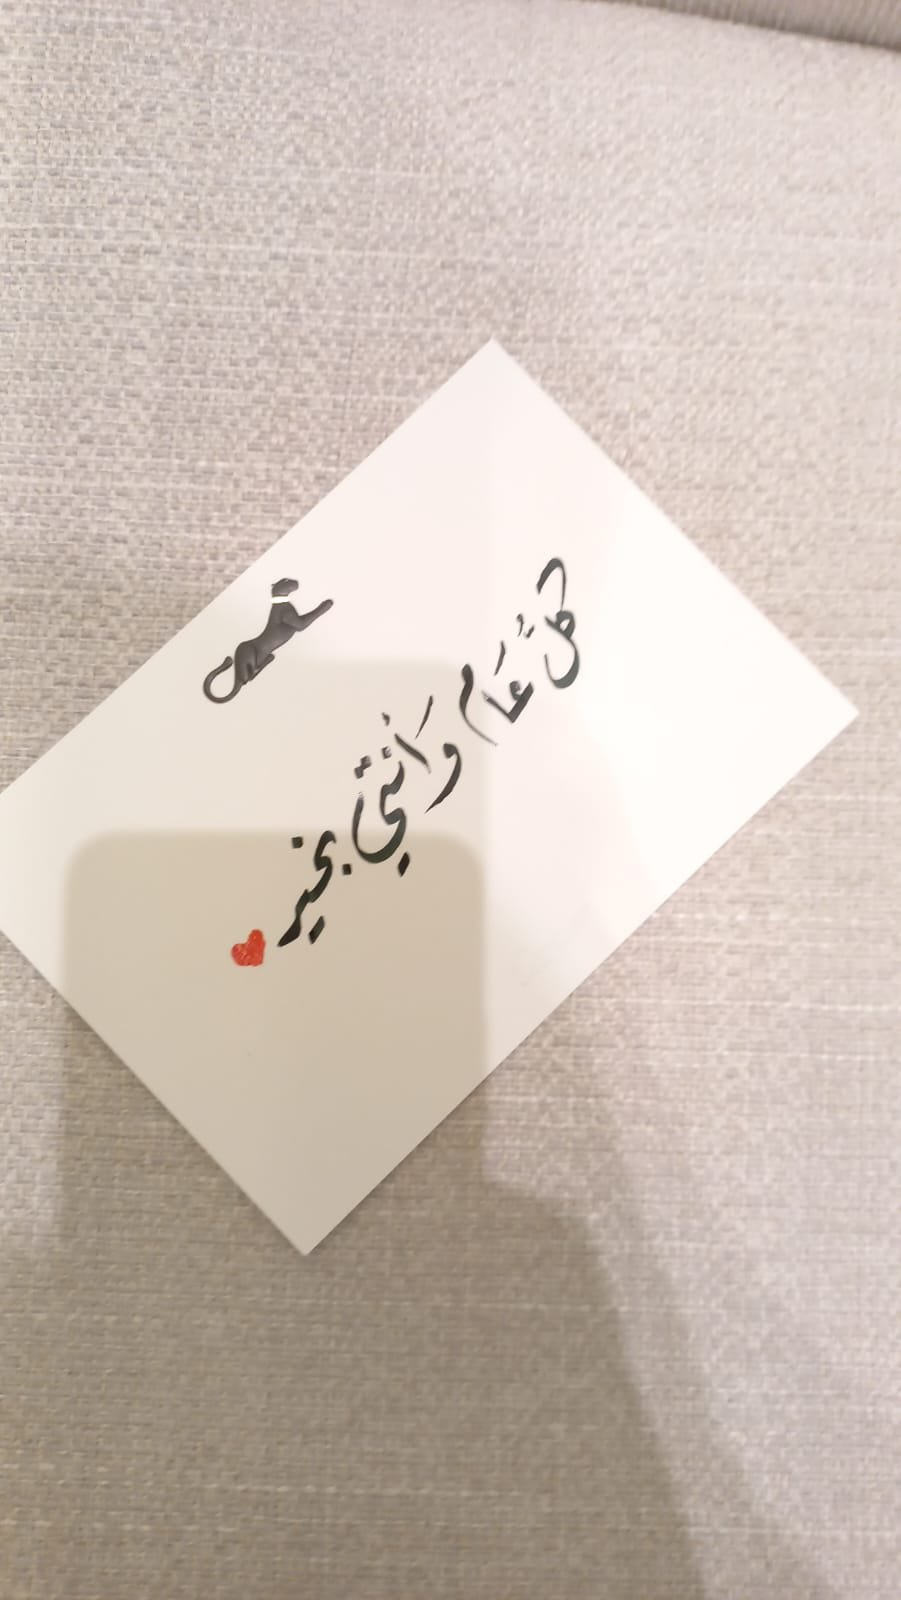 كلُّ عَام وَأنتي بخير